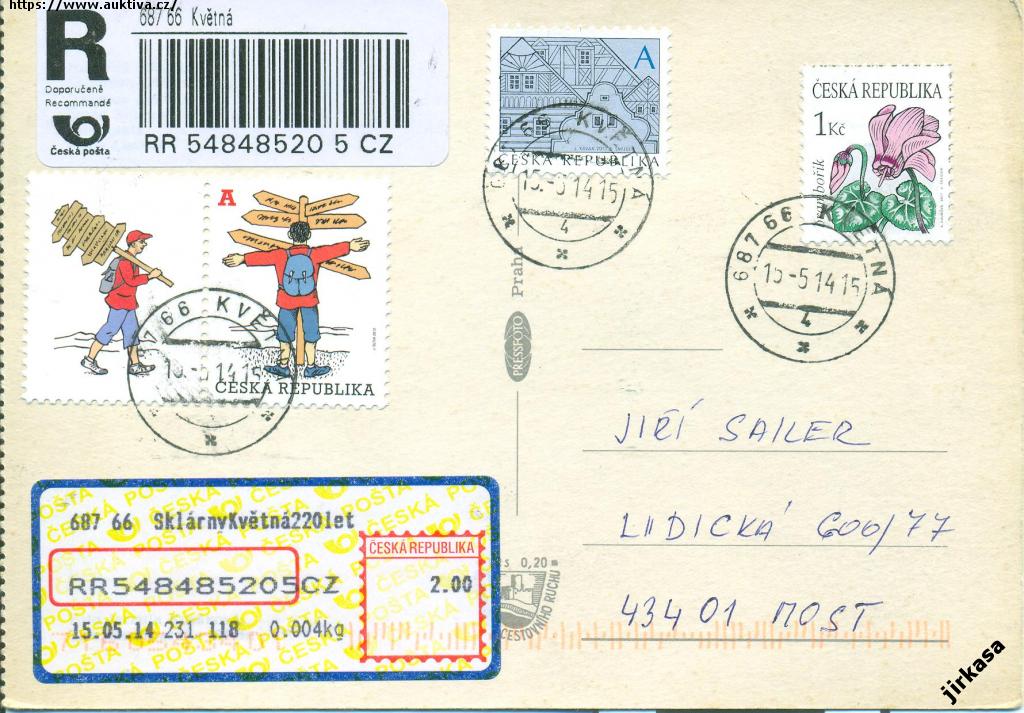 https://www.auktiva.cz/
R
Doporučeně
Recommandé
Česká pošta
687 66 Květná
RR 54848520 5 CZ
A
ČESKÁ REPUBLIKA
ČESKÁ REPUBLIKA
1Kč
brambořík
687 66 KVĚTNÁ
15.-5.14 15
4
687 66 KVĚTNÁ
15.-5.14 15
4
A
ČESKÁ REPUBLIKA
687 66 KVĚT
15.-5.14 15
Praha
PRESSFOTO
JIŘÍ SAILER
LIDICKÁ 600/77
434 01 MOST
687 66 SklárnyKvětná220let
ČESKÁ REPUBLIKA
RR548485205CZ
2.00
15.05.14 231 118 0.004kg
ČESKÁ POŠTA
s 0,20
CESTOVNÍHO RUCHU
jirkasa